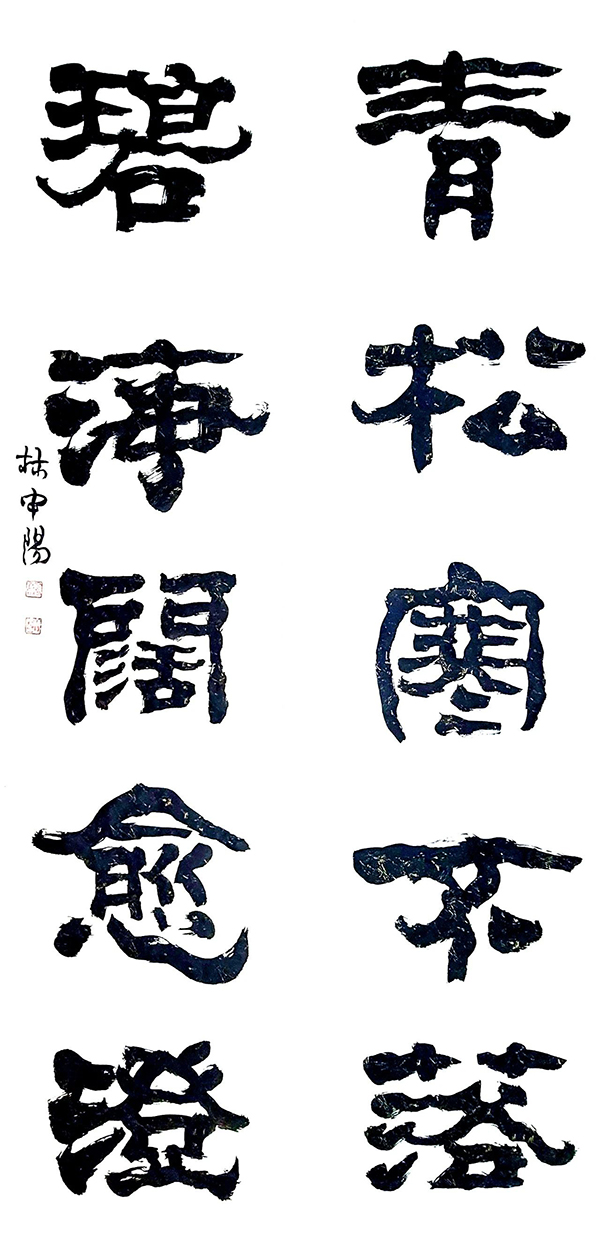 青松寒不落
碧海闊愈澄
林申陽